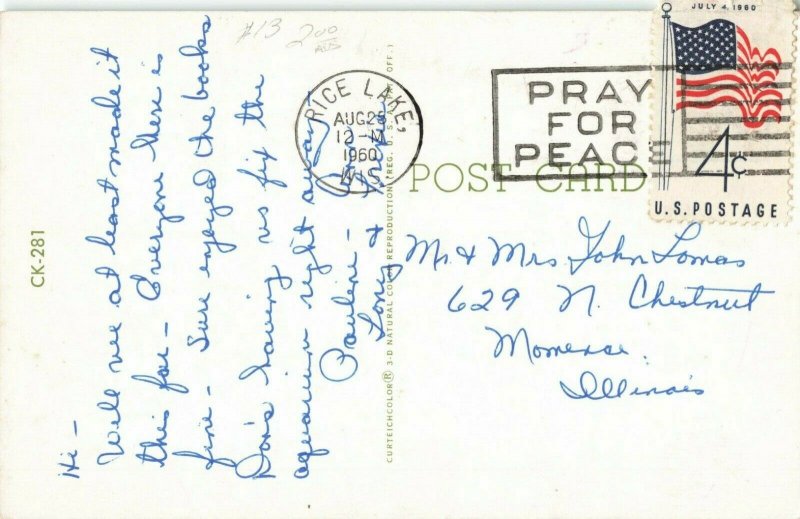 Hi -
Well we at least made it
this far - Everyone here is
fine - Sure enjoyed the books
Don's having us fix the
aquarium right away
Pauline -
Larry &
#13 2.00
RICE LAKE,
AUG 25
12 - M
1960
WIS.
PRAY
FOR
PEACE
JULY 4, 1960
4¢
U.S. POSTAGE
POST CARD
Mr. & Mrs. John Lomas
629 N. Chestnut
Momence
Illinois
CK-281
CURTEICHCOLOR® 3-D NATURAL COLOR REPRODUCTION (REG. U.S.A. OFF.)